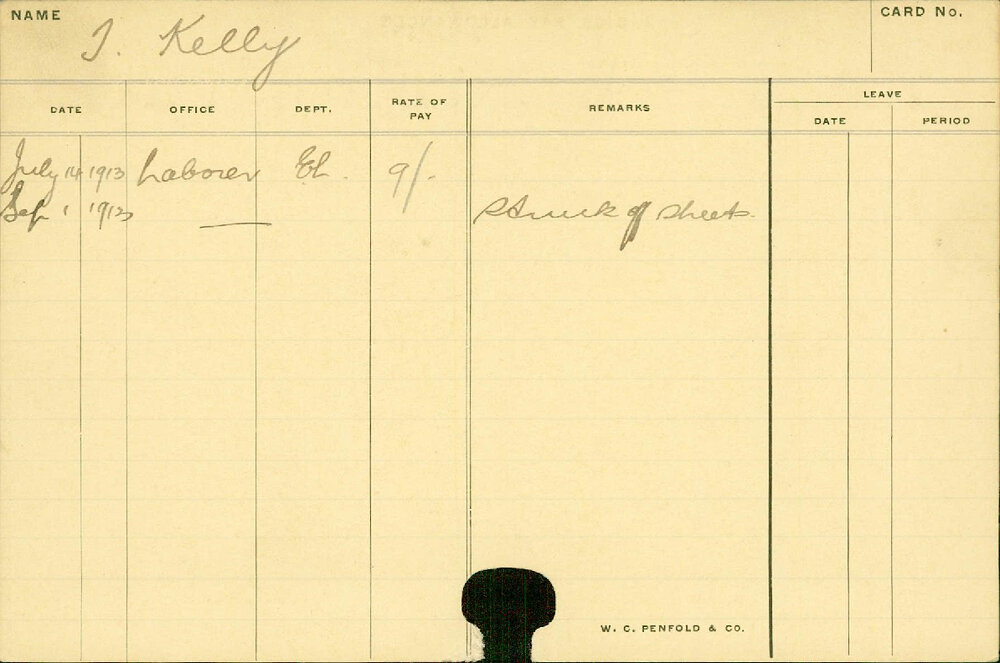 NAME
J. Kelly
CARD No.
DATE OFFICE DEPT. RATE OF PAY REMARKS LEAVE
DATE PERIOD
July 14 1913 Laborer EL. 9/-
Sep 1 1913 — Struck off sheets
W. C. PENFOLD & CO.